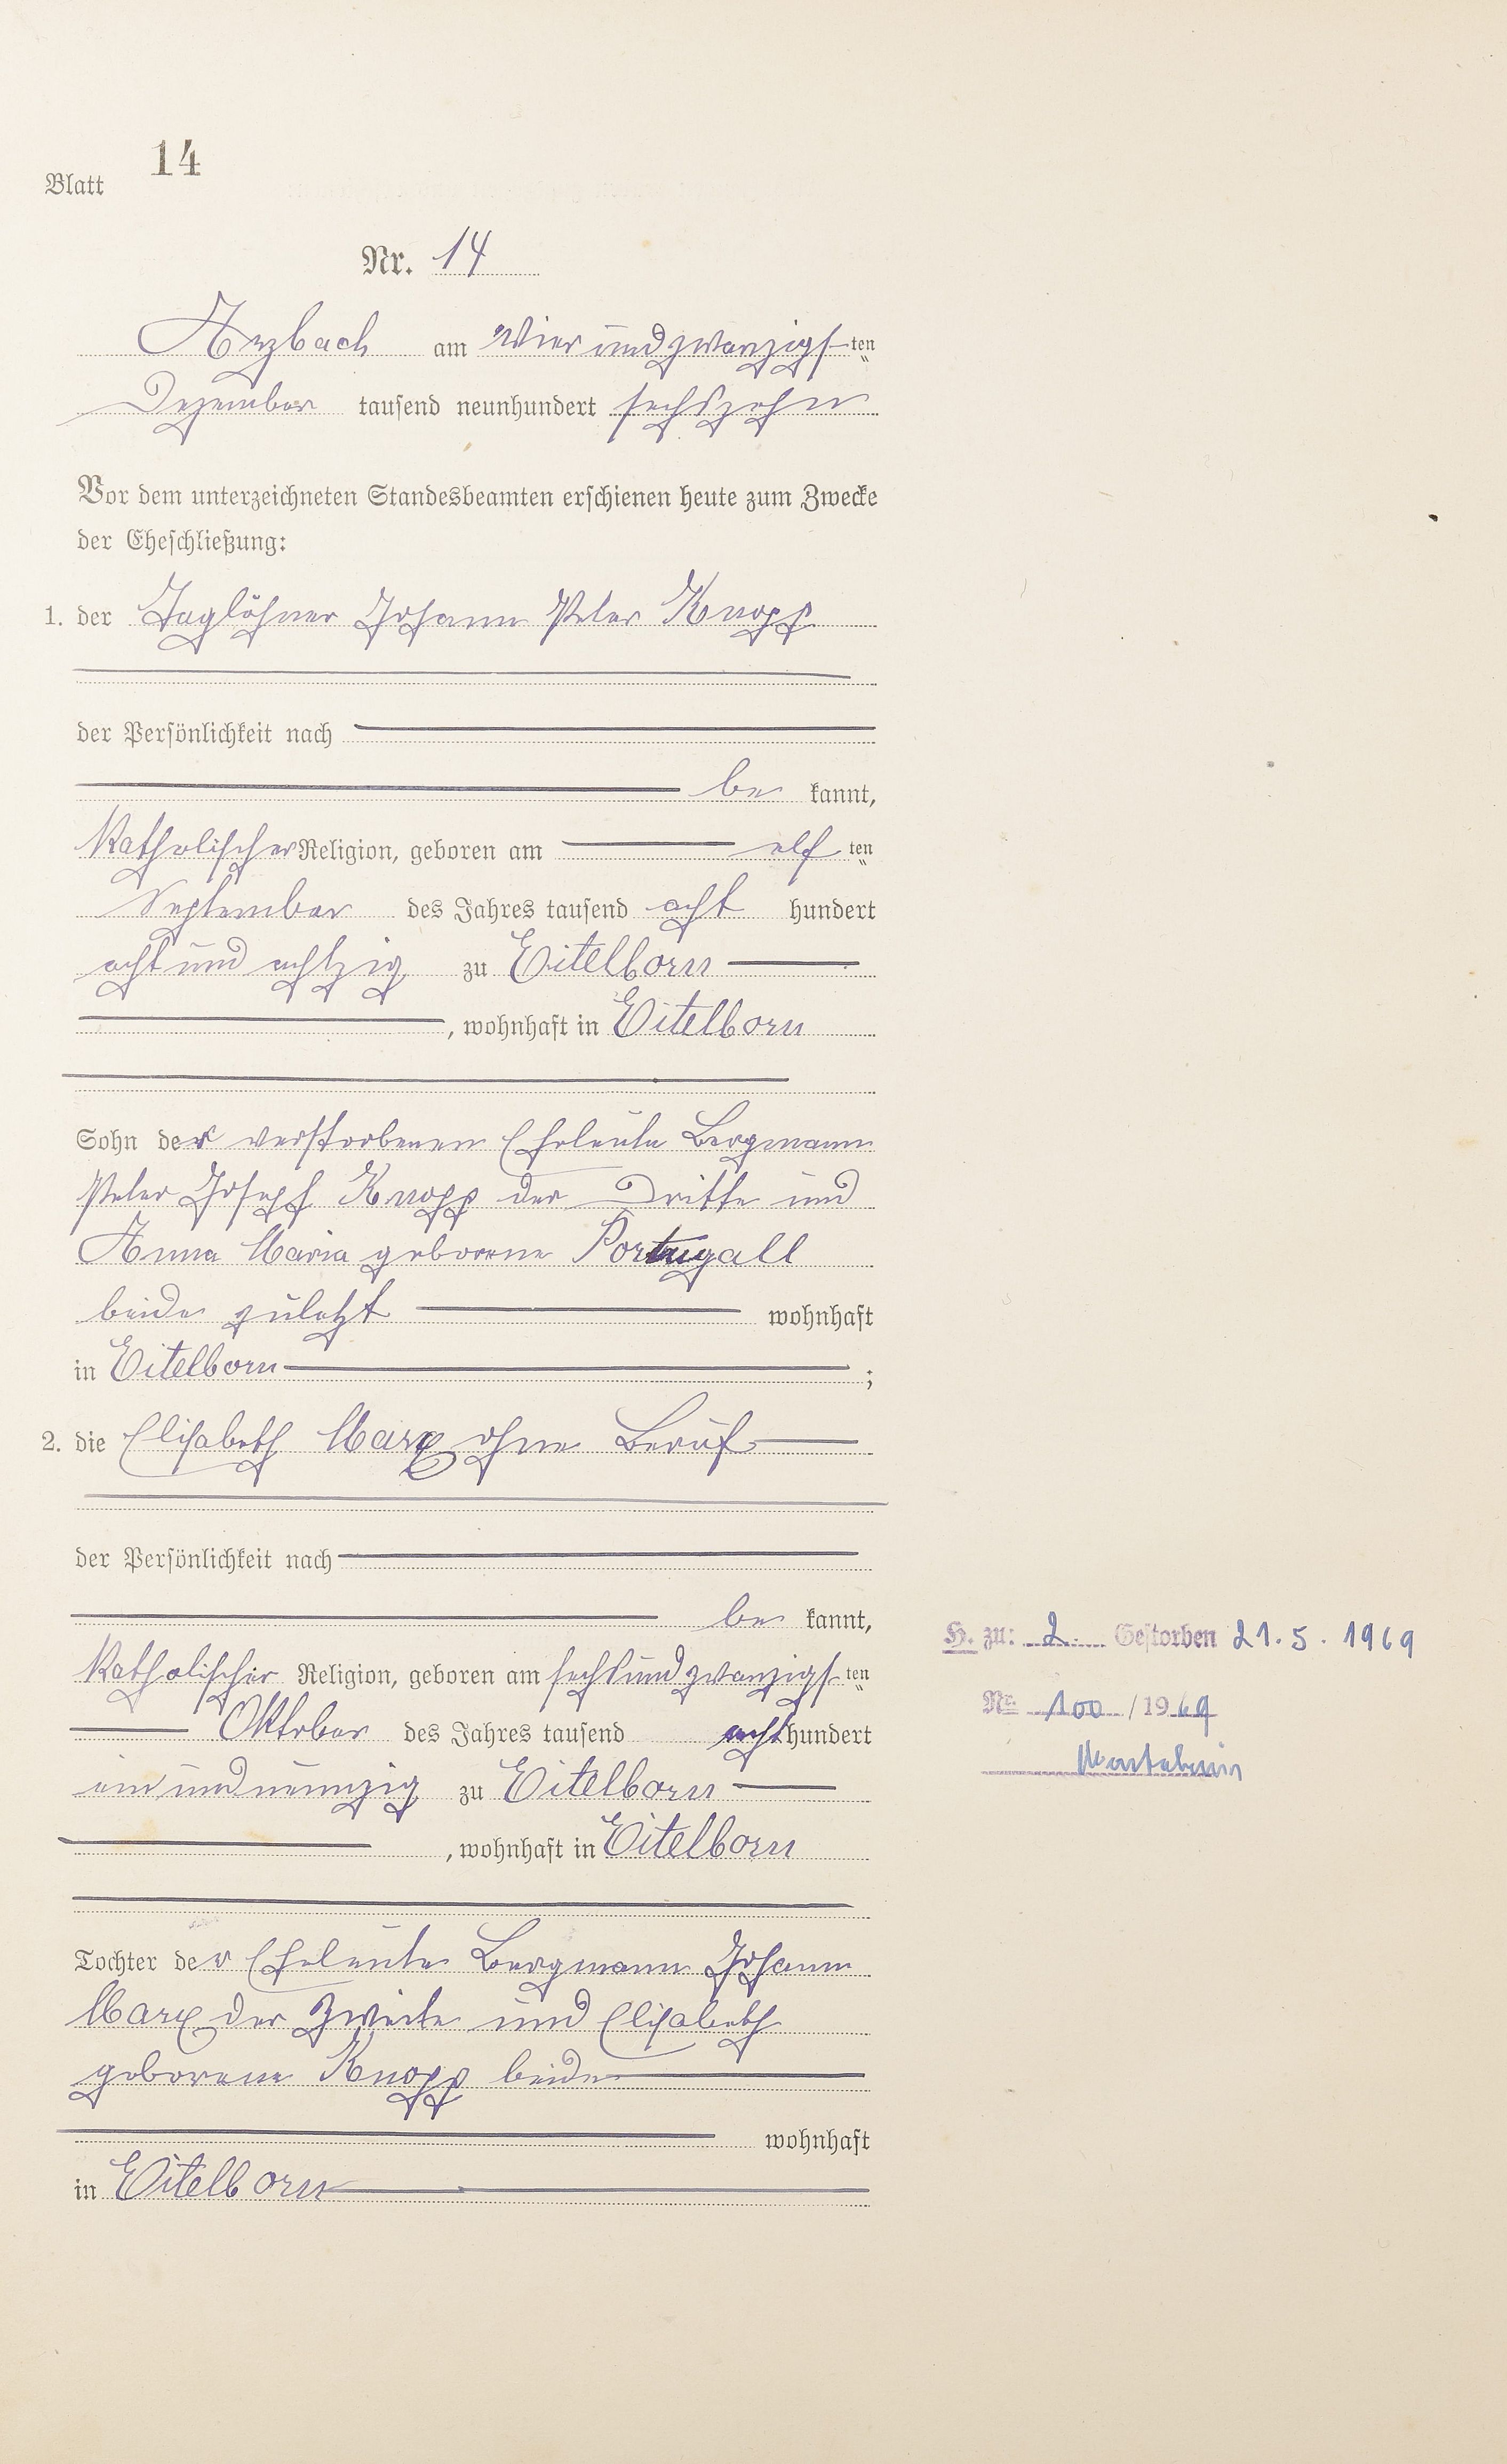 Blatt 14
Nr. 14
Arzbach am Vier und zwanzigsten
Dezember tausend neunhundert sechszehn
Vor dem unterzeichneten Standesbeamten erschienen heute zum Zwecke
der Eheschließung:
1. der Taglöhner Johann Peter Knopp
der Persönlichkeit nach
be kannt,
Katholischer Religion, geboren am elf ten
September des Jahres tausend acht hundert
acht und achtzig zu Eitelborn
, wohnhaft in Eitelborn
Sohn der verstorbenen Eheleute Bergmann
Peter Joseph Knopp der Dritte und
Anna Maria geborene Portugall
beide zuletzt wohnhaft
in Eitelborn ;
2. die Elisabeth Marx ohne Beruf
der Persönlichkeit nach
be kannt,
Katholischer Religion, geboren am sechs und zwanzigsten
Oktober des Jahres tausend acht hundert
ein und neunzig zu Eitelborn
, wohnhaft in Eitelborn
Tochter der Eheleute Bergmann Johann
Marx der Zweite und Elisabeth
geborene Knopp beide
wohnhaft
in Eitelborn
H. zu: 2. Gestorben 21.5.1969
Nr. 100 / 1969